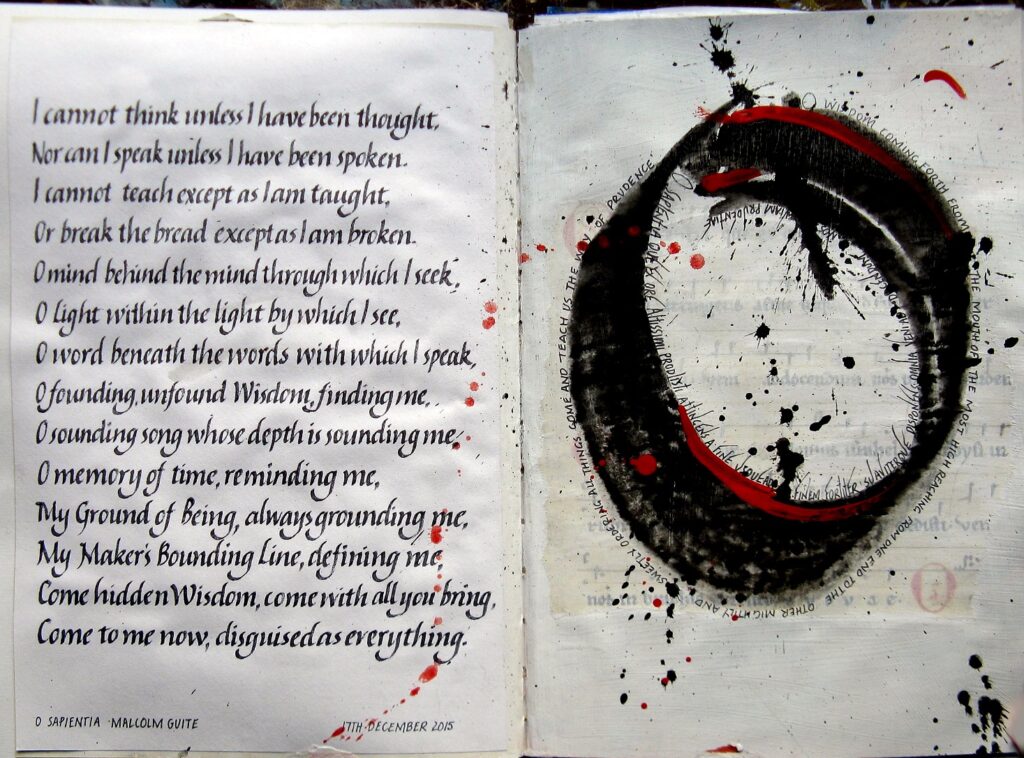 I cannot think unless I have been thought,
Nor can I speak unless I have been spoken.
I cannot teach except as I am taught,
Or break the bread except as I am broken.
O mind behind the mind through which I seek,
O light within the light by which I see,
O word beneath the words with which I speak,
O founding, unfound Wisdom, finding me,
O sounding song whose depth is sounding me,
O memory of time, reminding me,
My Ground of Being, always grounding me,
My Maker's Bounding Line, defining me,
Come hidden Wisdom, come with all you bring,
Come to me now, disguised as everything.
O SAPIENTIA · MALCOLM GUITE
17TH · DECEMBER 2015
O WISDOM COMING FORTH FROM THE MOUTH OF THE MOST HIGH REACHING FROM ONE END TO THE OTHER MIGHTILY AND SWEETLY ORDERING ALL THINGS COME AND TEACH US THE WAY OF PRUDENCE
O Sapientia QUAE EX ORE ALTISSIMI PRODISTI ATTINGENS A FINE USQUE AD FINEM FORTITER SUAVITER